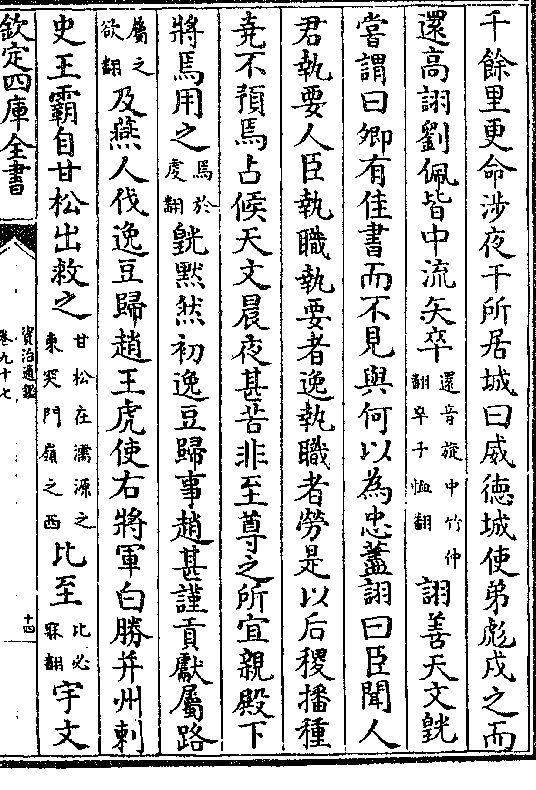 千餘里更命涉夜干所居城曰威德城使弟彪戍之而
還高詡劉佩皆中流矢卒還音旋中竹仲翻卒子恤翻詡善天文皝
嘗謂曰卿有佳書而不見與何以為忠藎詡曰臣聞人
君執要人臣執職執要者逸執職者勞是以后稷播種
堯不預焉占候天文晨夜甚苦非至尊之所宜親殿下
將焉用之焉於䖍翻皝黙然初逸豆歸事趙甚謹貢獻屬路
屬之欲翻及燕人伐逸豆歸趙王虎使右將軍白勝并州刺
史王霸自甘松出救之甘松在濡源之東突門嶺之西比至比必寐翻宇文
欽定四庫全書
資治通鑑
卷九十七
十四